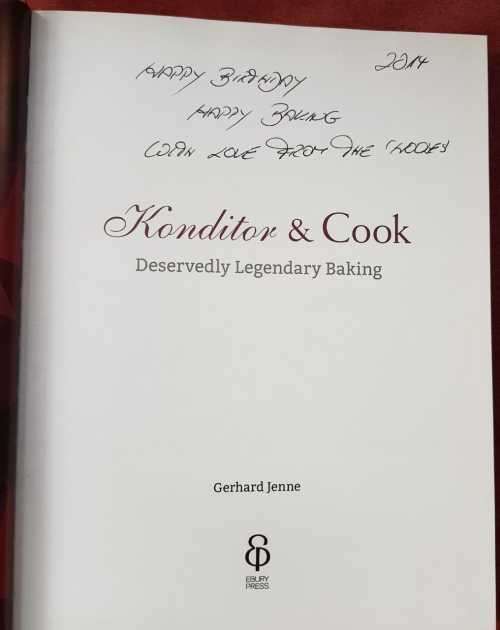 2014
HAPPY BIRTHDAY
HAPPY BAKING
WITH LOVE FROM THE
Konditor & Cook
Deservedly Legendary Baking
Gerhard Jenne
EBURY
PRESS